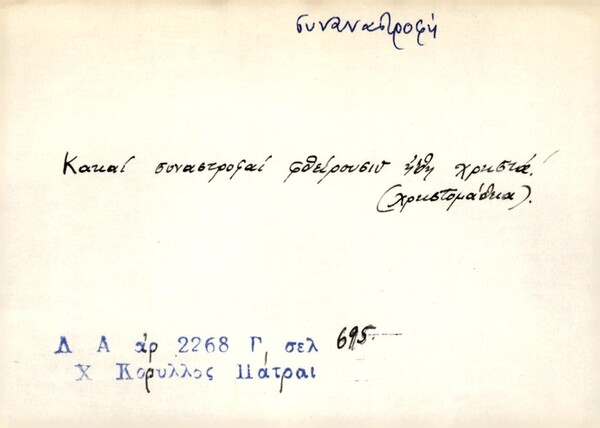 συναναστροφή
Κακαί συναστροφαί φθείρουσιν ήθη χρηστά!
(χρηστομάθεια).
Λ Α άρ 2268 Γ, σελ 695.
Χ Κορυλλος Πάτραι